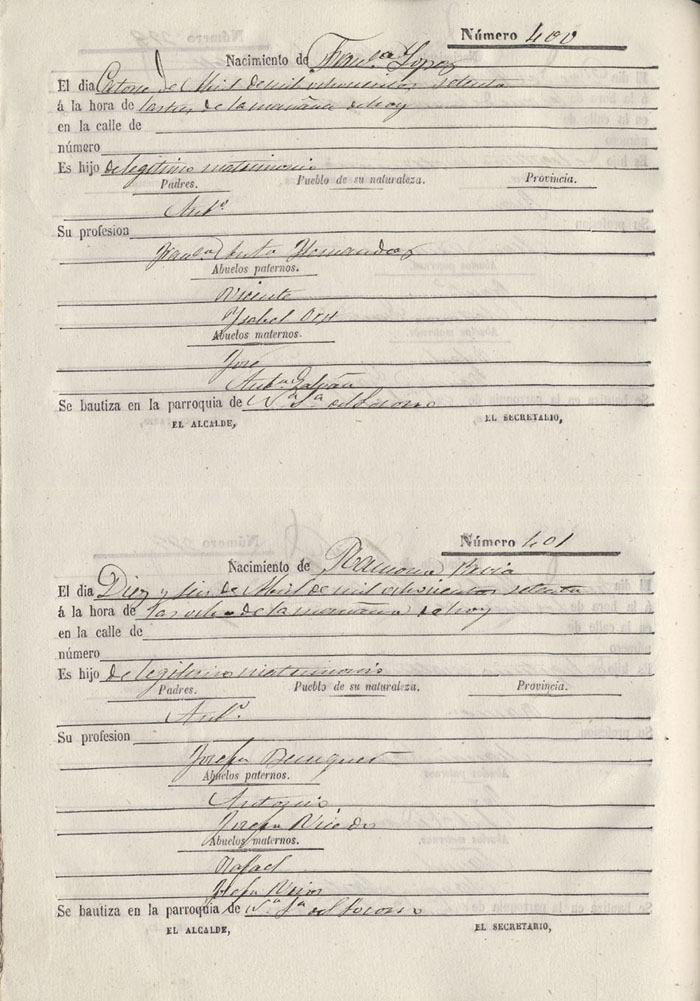 Número 400
Nacimiento de Fran.ca Lopez
El dia Catorce de Abril de mil ochocientos setenta
á la hora de las tres de la mañana de hoy
en la calle de
número
Es hijo de legitimo matrimonio
Padres. Pueblo de su naturaleza. Provincia.
Ant.º
Su profesion
Fran.ca Anta Hernandez
Abuelos paternos.
Vicente
Ysabel
Abuelos maternos.
José
Ant.a Galvañ
Se bautiza en la parroquia de N.a S.a del Socorro
EL ALCALDE, EL SECRETARIO,
Número 401
Nacimiento de Ramona
El dia Diez y seis de Abril de mil ochocientos setenta
á la hora de las ocho de la mañana de hoy
en la calle de
número
Es hijo de legitimo matrimonio
Padres. Pueblo de su naturaleza. Provincia.
Ant.º
Su profesion
Josefa
Abuelos paternos.
Antonio
Josefa
Abuelos maternos.
Rafael
Josefa
Se bautiza en la parroquia de N.a S.a del Socorro
EL ALCALDE, EL SECRETARIO,